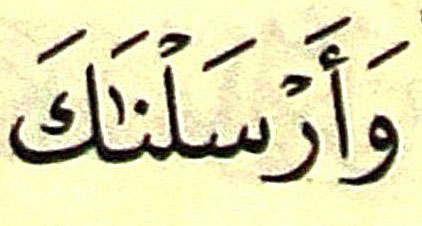 وَأَرْسَلْنَٰكَ